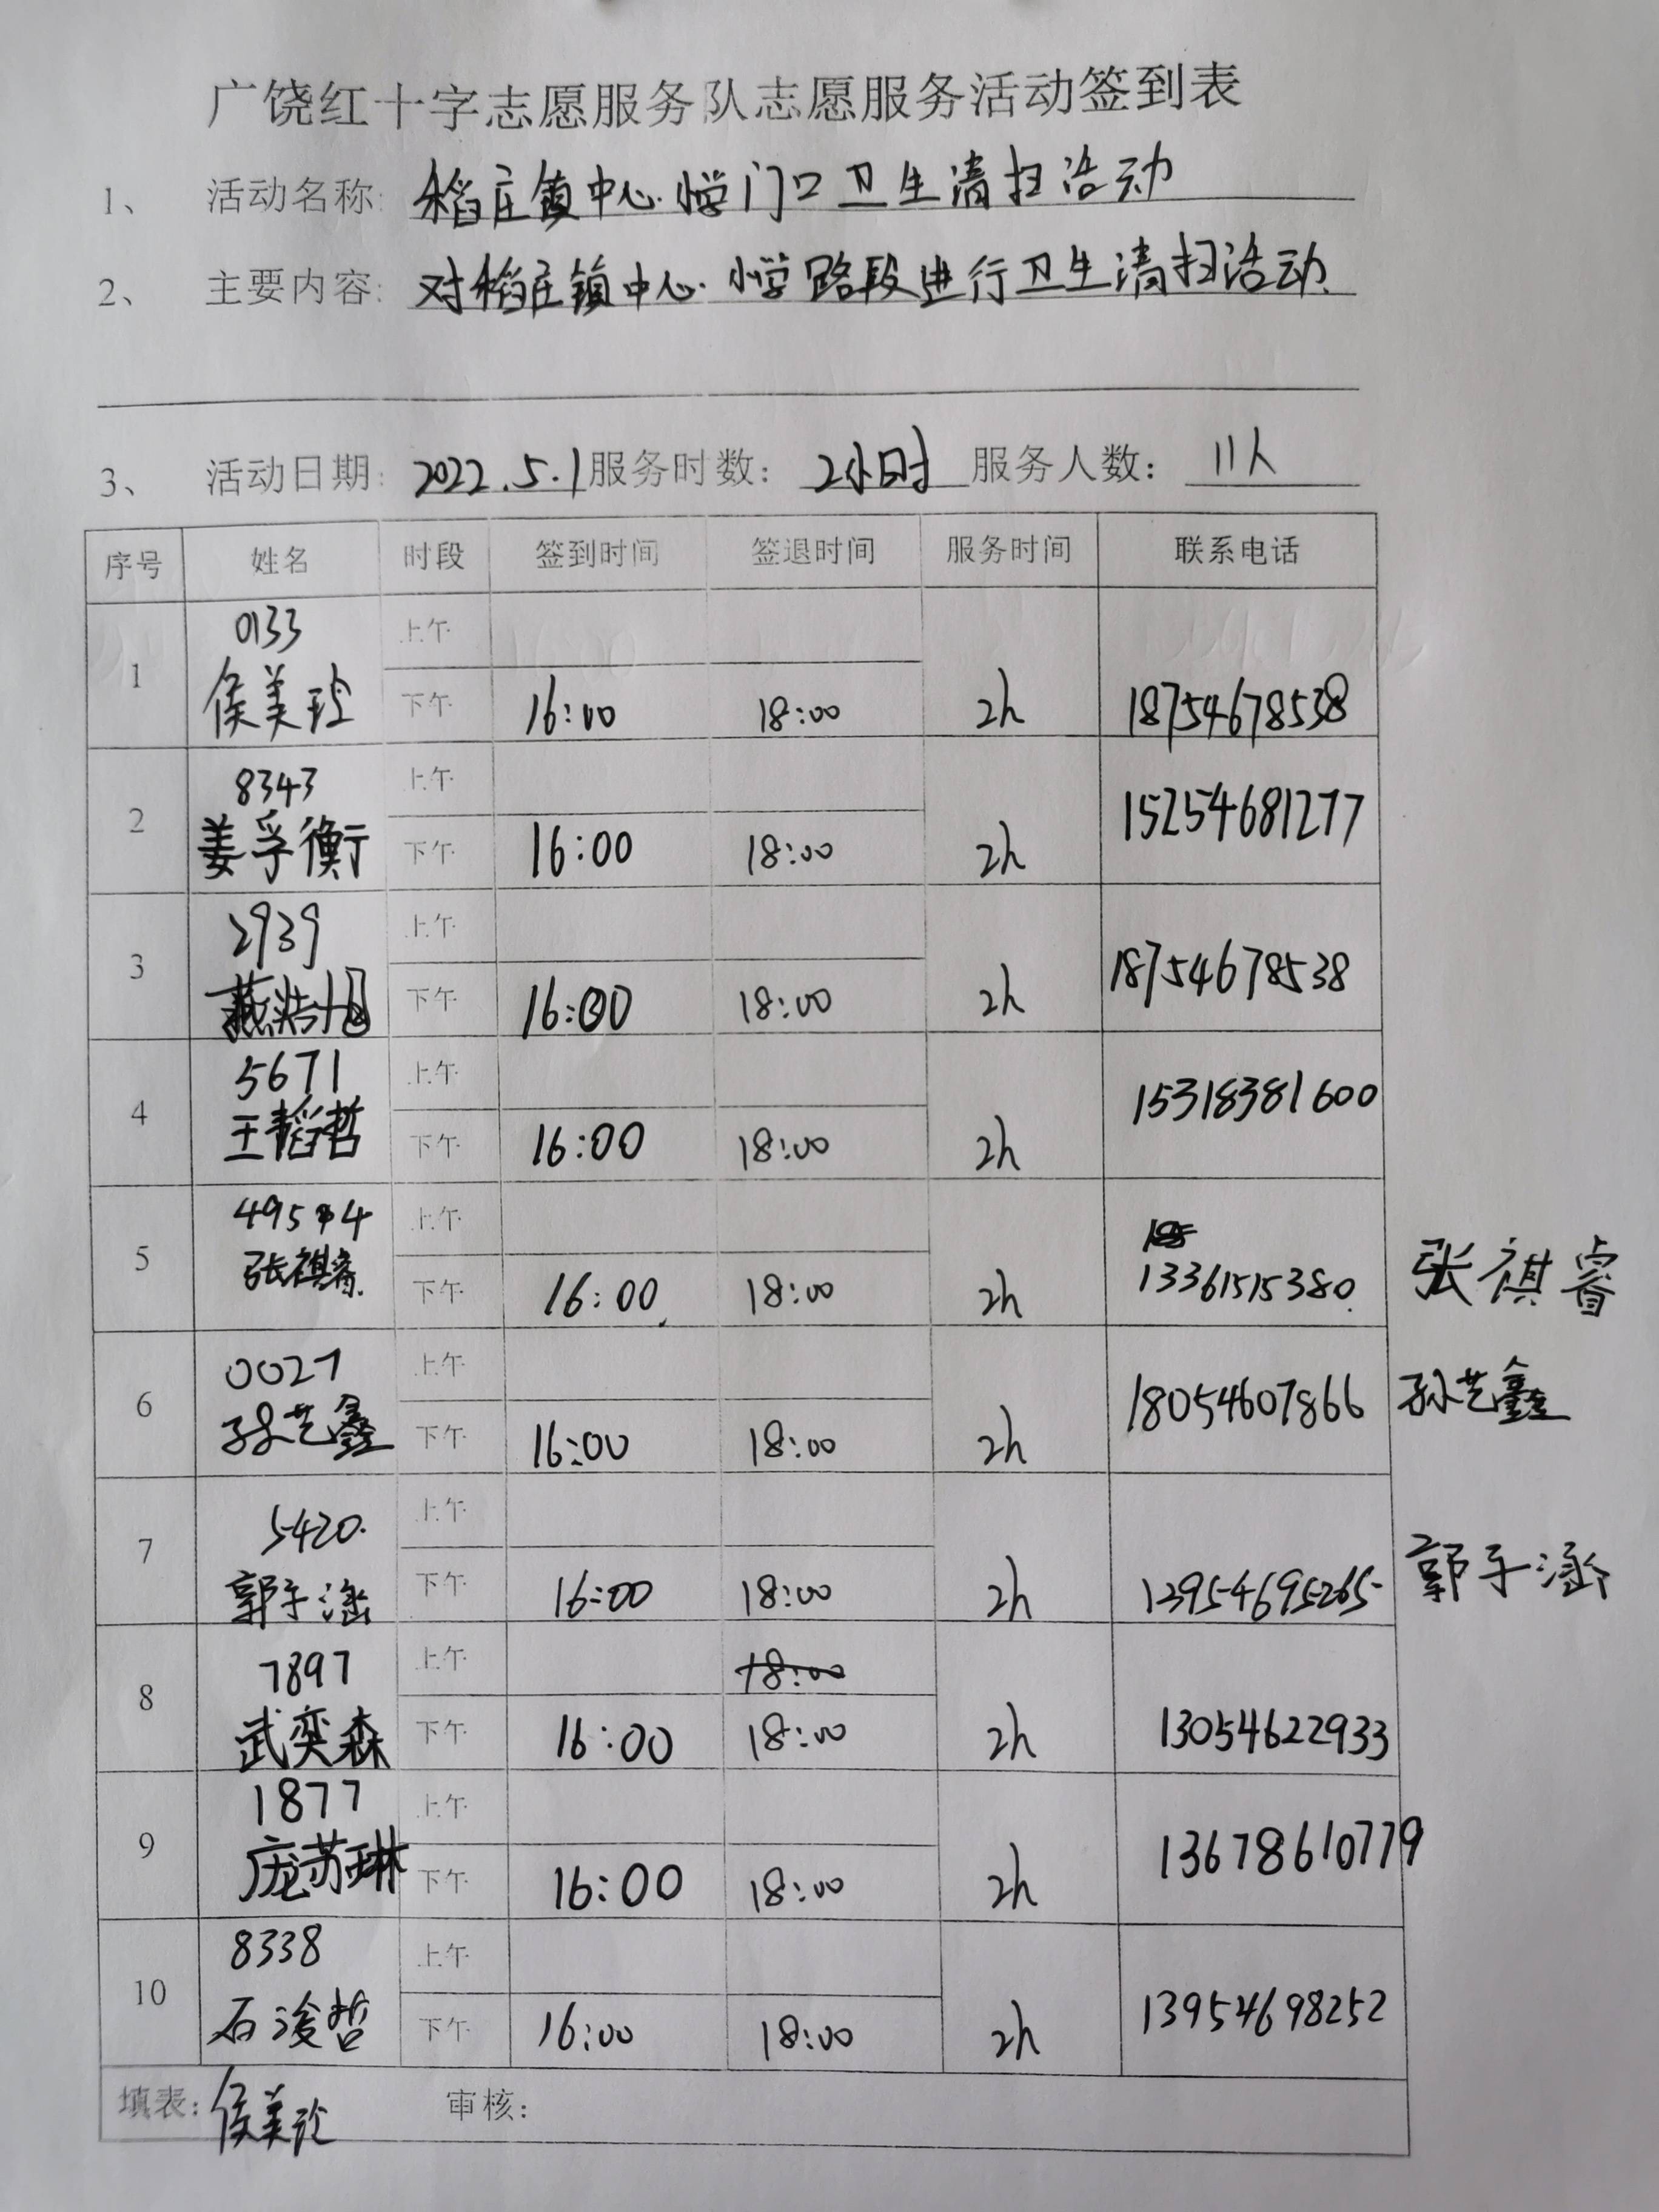 广饶红十字志愿服务队志愿服务活动签到表
1、 活动名称: 稻庄镇中心小学门口卫生清扫活动
2、 主要内容: 对稻庄镇中心小学路段进行卫生清扫活动.
3、 活动日期: 2022.5.1 服务时数: 2小时 服务人数: 11人
序号 姓名 时段 签到时间 签退时间 服务时间 联系电话
0133 上午
1 侯美玲 下午 16:00 18:00 2h 18754678538
8343 上午
2 姜孚衡 下午 16:00 18:00 2h 15254681277
2939 上午
3 燕浩旭 下午 16:00 18:00 2h 18754678538
5671 上午
4 王韬哲 下午 16:00 18:00 2h 15318381600
4954 上午
5 张祺睿 下午 16:00 18:00 2h 13361515380 张祺睿
0027 上午
6 孙艺鑫 下午 16:00 18:00 2h 18054607866 孙艺鑫
5420 上午
7 郭子涵 下午 16:00 18:00 2h 13954695265 郭子涵
7897 上午 18:00
8 武奕森 下午 16:00 18:00 2h 13054622933
1877 上午
9 庞苏琳 下午 16:00 18:00 2h 13678610779
8338 上午
10 石浚哲 下午 16:00 18:00 2h 13954698252
填表: 侯美玲 审核: